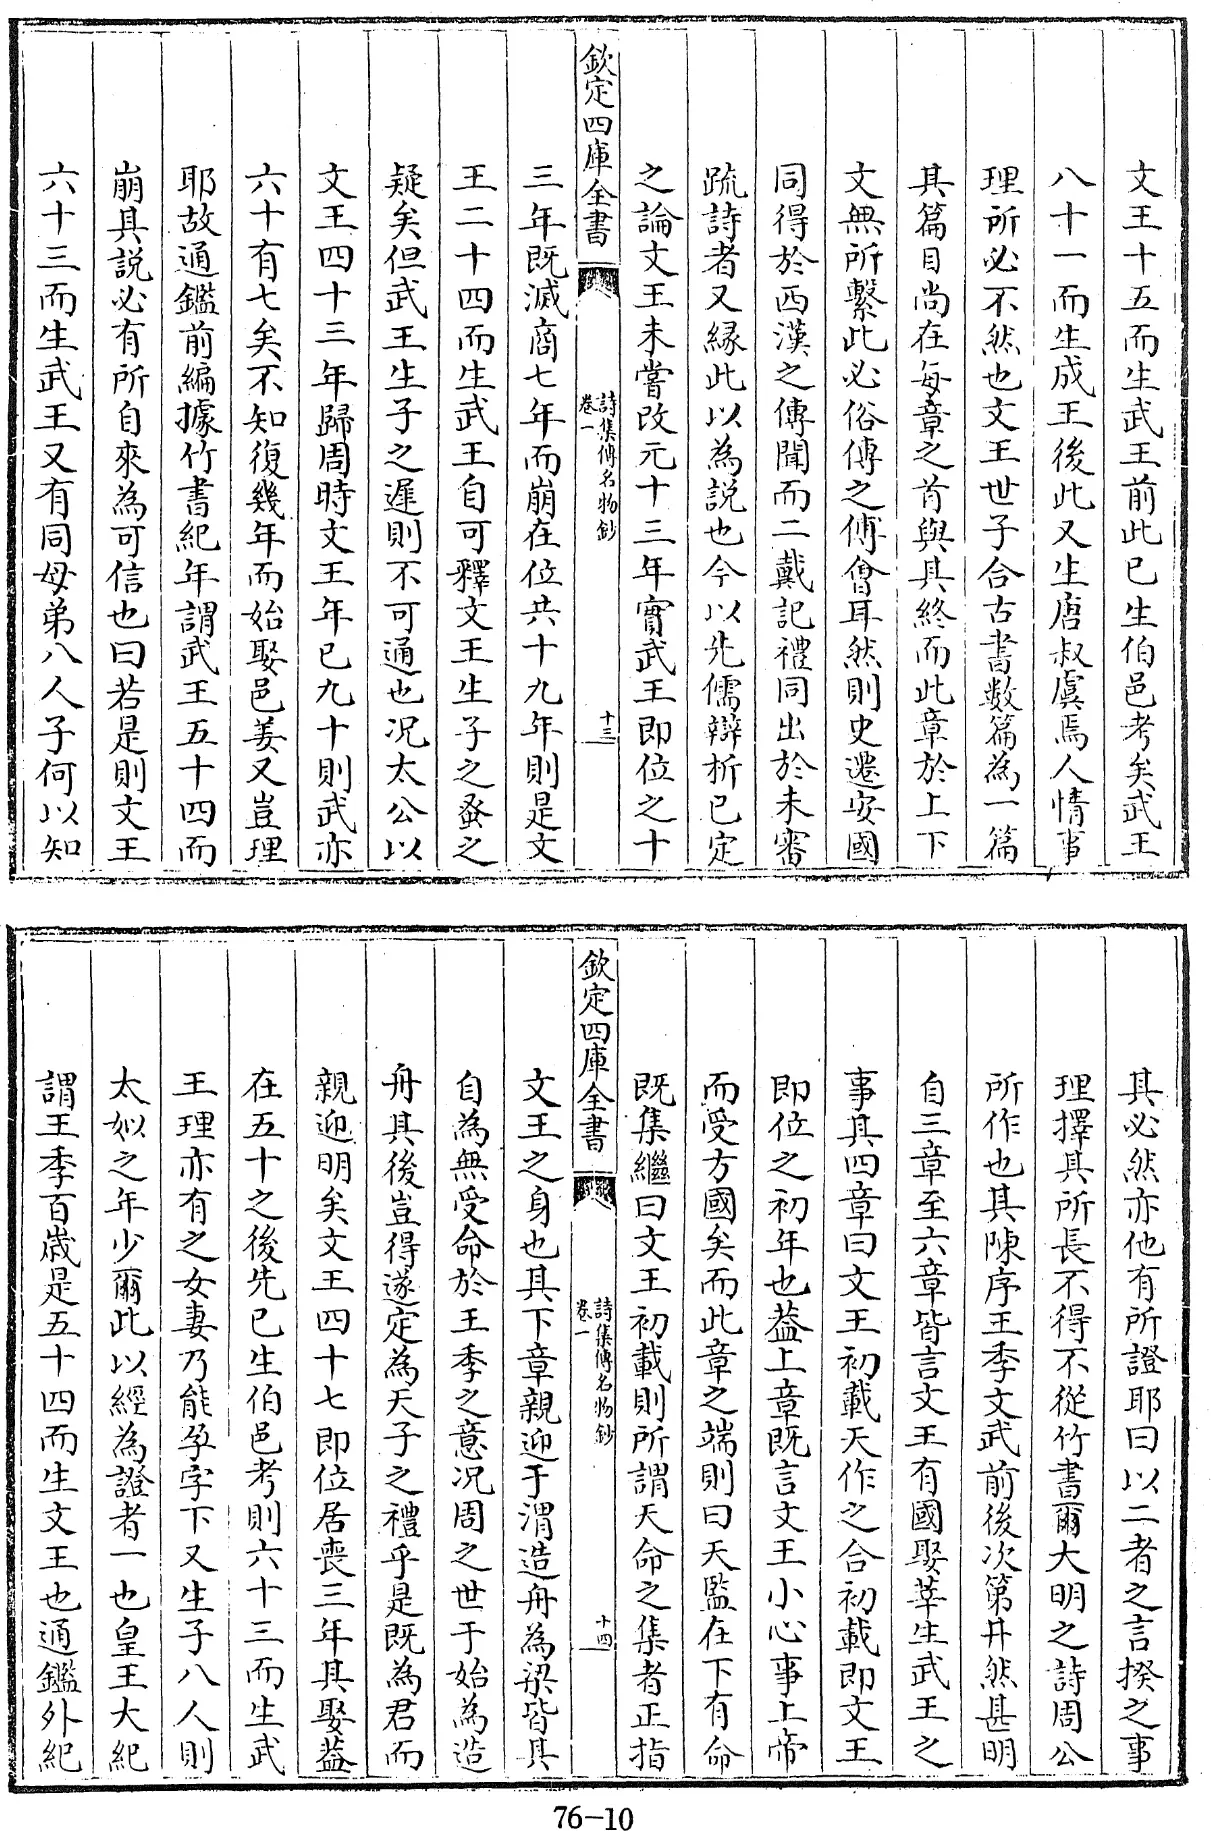 文王十五而生武王前此已生伯邑考矣武王
八十一而生成王後此又生唐叔虞焉人情事
理所必不然也文王世子合古書數篇為一篇
其篇目尚在每章之首與其終而此章於上下
文無所繫此必俗傳之傅㑹耳然則史遷安國
同得於西漢之傳聞而二戴記禮同出於未審
疏詩者又緣此以為説也今以先儒辯析已定
之論文王未嘗改元十三年實武王即位之十
欽定四庫全書
詩集傳名物鈔
卷一
十三
三年既滅商七年而崩在位共十九年則是文
王二十四而生武王自可釋文王生子之蚤之
疑矣但武王生子之遲則不可通也况太公以
文王四十三年歸周時文王年已九十則武亦
六十有七矣不知復幾年而始娶邑姜又豈理
耶故通鑑前編據竹書紀年謂武王五十四而
崩其説必有所自來為可信也曰若是則文王
六十三而生武王又有同母弟八人子何以知
其必然亦他有所證耶曰以二者之言揆之事
理擇其所長不得不從竹書爾大明之詩周公
所作也其陳序王季文武前後次第井然甚明
自三章至六章皆言文王有國娶莘生武王之
事其四章曰文王初載天作之合初載即文王
即位之初年也葢上章既言文王小心事上帝
而受方國矣而此章之端則曰天監在下有命
既集繼曰文王初載則所謂天命之集者正指
欽定四庫全書
詩集傳名物鈔
卷一
十四
文王之身也其下章親迎于渭造舟為梁皆其
自為無受命於王季之意况周之世于始為造
舟其後豈得遂定為天子之禮乎是既為君而
親迎明矣文王四十七即位居喪三年其娶葢
在五十之後先已生伯邑考則六十三而生武
王理亦有之女妻乃能孕字下又生子八人則
太姒之年少爾此以經為證者一也皇王大紀
謂王季百歲是五十四而生文王也通鑑外紀
76-10